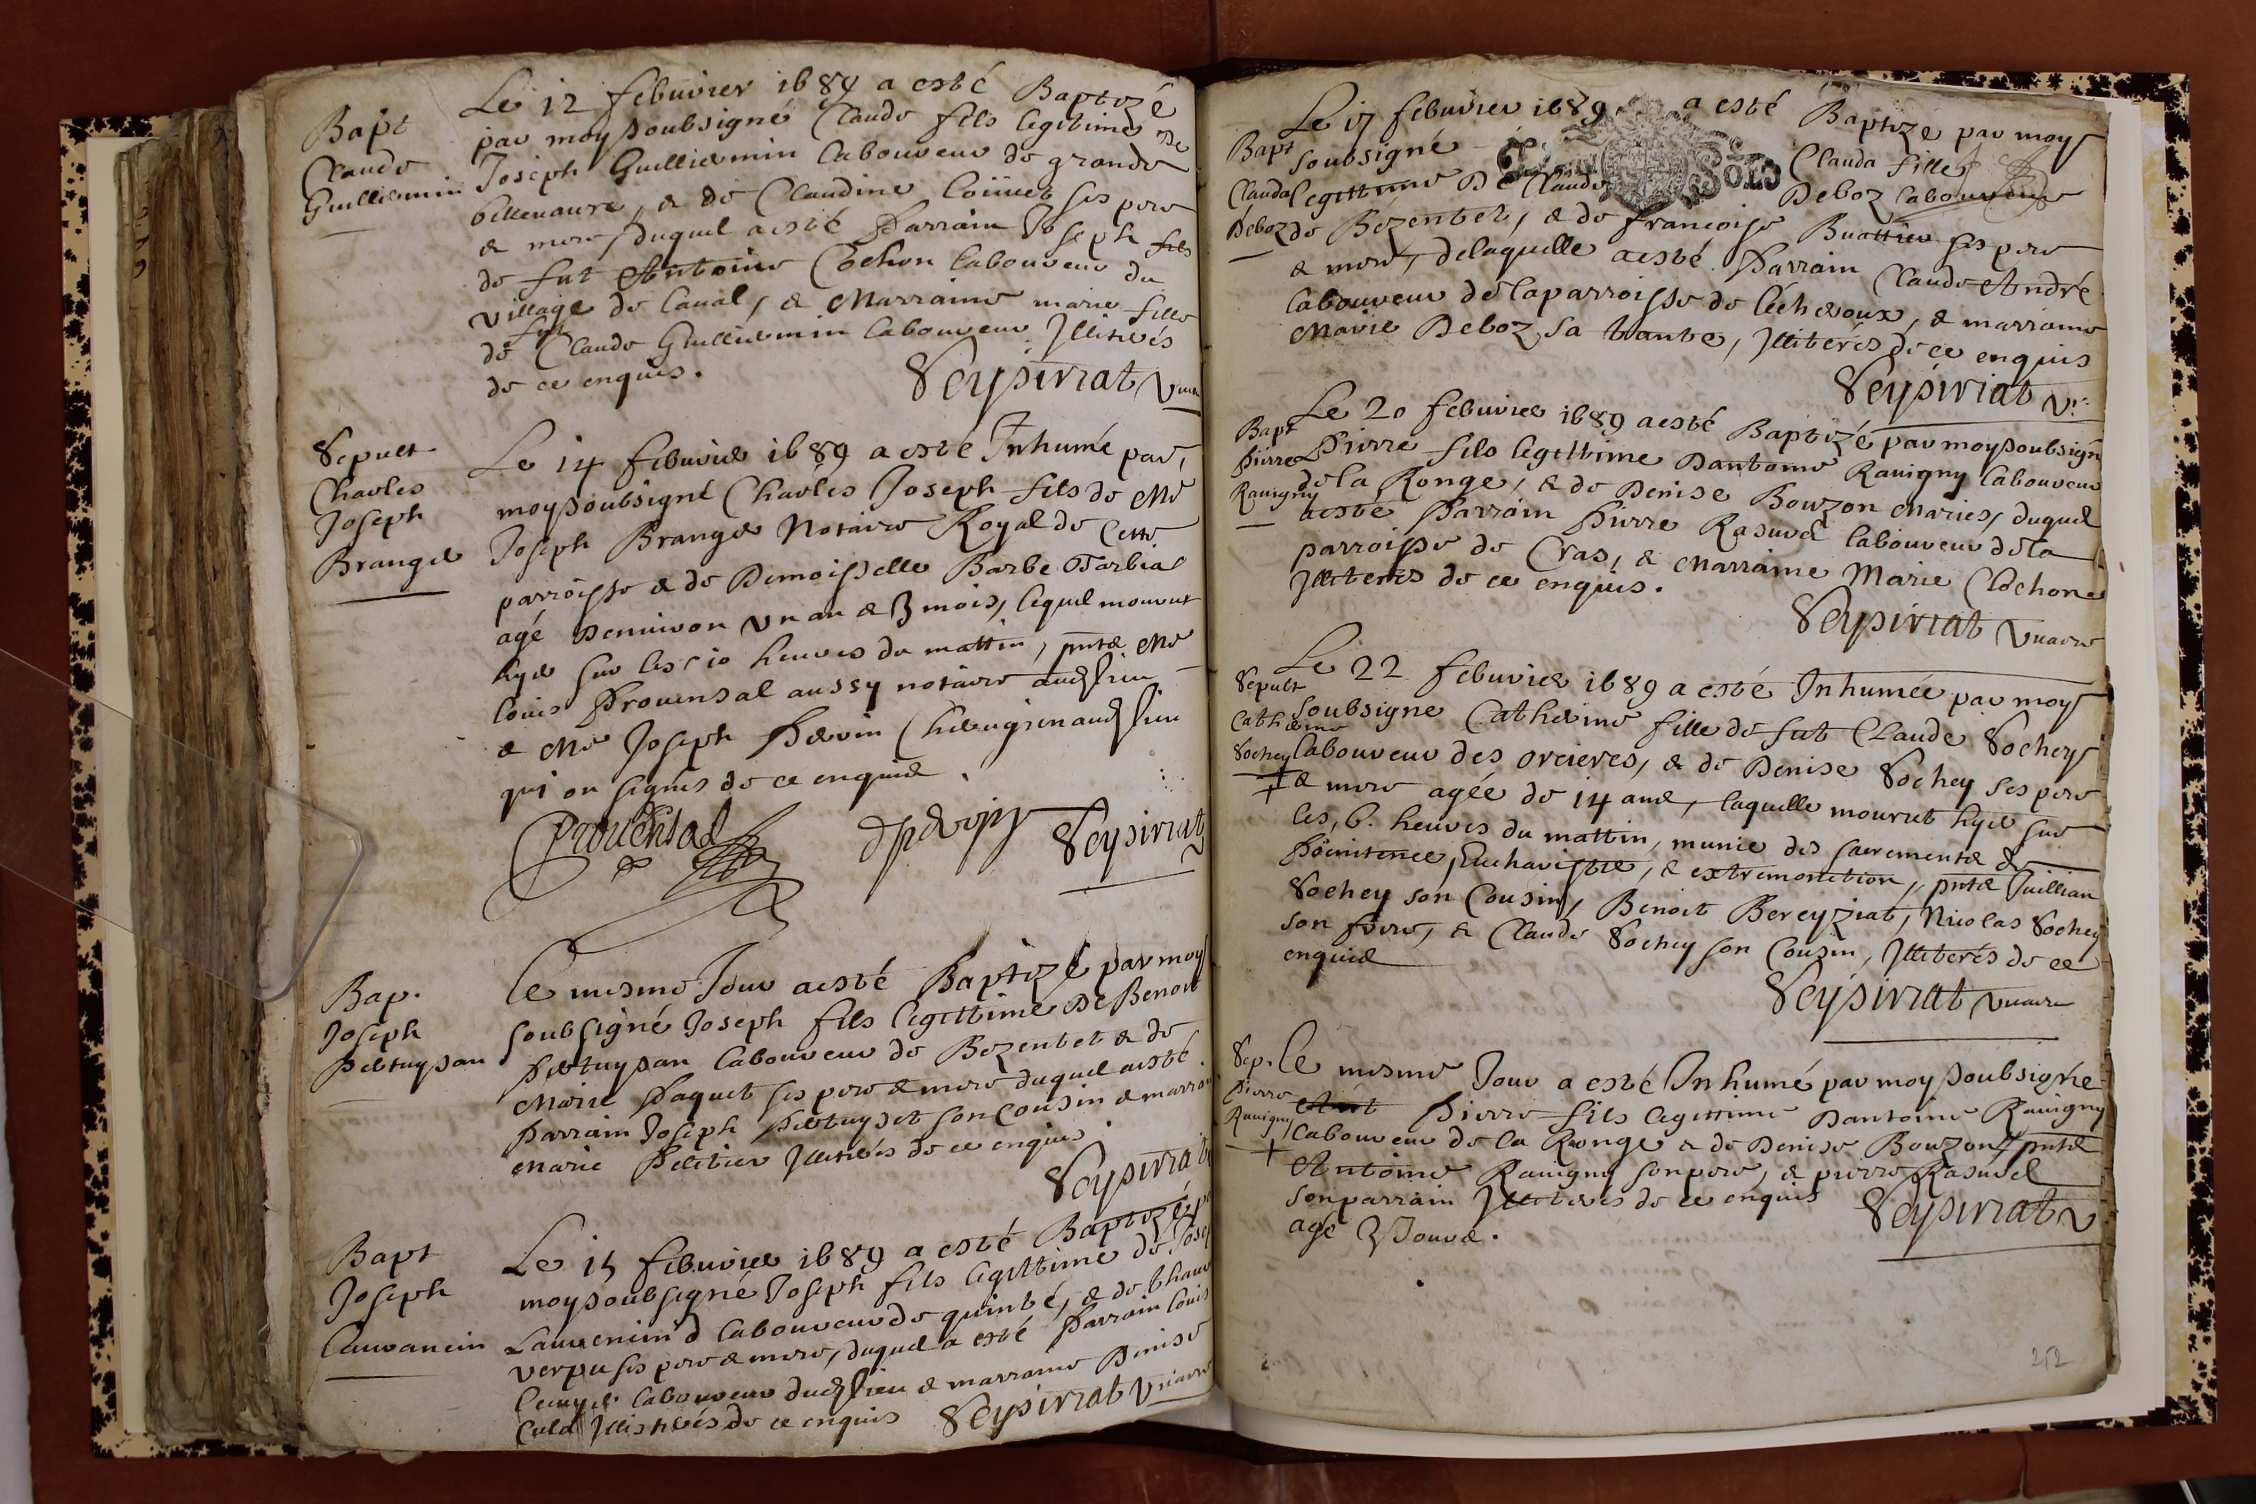 Bapt
Claude
Guilliermin
Le 12 febuvier 1689 a esté Baptizé
par moy soubsigné Claude fils legitime de
Joseph Guilliermin laboureur de grande
villenauve, & de Claudine ses pere
& mere, duquel a esté Parrain Joseph fils
de fut Antoine Cochon laboureur du
village de laual, & Marraine marie fille
de fut Claude Guilliermin laboureur Illiterés
de ce enquis.
Veysiriat
Sepult
Charles
Joseph
Branger
Le 14 febuvier 1689 a esté Inhumé par
moy soubsigné Charles Joseph fils de Me
Joseph Branger Notaire Royal de Cette
parroisse & de Demoiselle Barbe
agé Denuiron un an & 3 mois, lequel mourut
hyer sur les 10 heures du mattin, pnts Me
Louis Prouensal aussy notaire audt lieu
& Me Joseph Peruin Chirurgien audt lieu
qui on signés de ce enquis.
Prouensal
Veysiriat
Bap.
Joseph
Pertuysan
Le mesme Jour a esté Baptizé par moy
soubsigné Joseph fils legittime De Benoit
Pertuysan laboureur de Bezentet & de
Marie Paquet ses pere & mere duquel a esté
Parrain Joseph Pertuyset son Cousin & marraine
Marie Peletier Illiterés de ce enquis.
Veysiriat
Bapt
Joseph
Lauransin
Le 15 febuvier 1689 a esté Baptizé par
moy soubsigné Joseph fils legittime de Josep
laboureur de quinte, & de
ses pere & mere, duquel a esté Parrain Louis
laboureur dudt lieu & marraine Denise
Illiterés de ce enquis Veysiriat Vicaire
Bapt
Clauda
Deboz
Le 17 febuvier 1689 a esté Baptize par moy
soubsigné Clauda fille
legittime De Claude Deboz laboureur
de Bezentet, & de francoise ses pere
& mere, de laquelle a esté Parrain Claude André
laboureur de la parroisse de léchéroux, & marraine
Marie Deboz sa tante, Illiterés de ce enquis
Veysiriat Vre
Bapt
Pierre
Rauigny
Le 20 febuvier 1689 a esté Baptizé par moy soubsigné
Pierre fils legittime Dantoine Rauigny laboureur
de la Ronge, & de Denise Bouzon Mariés, duquel
a esté Parrain Pierre Rasurel laboureur de la
parroisse de Cras, & Marraine Marie Clochon
Illiterés de ce enquis.
Veysiriat Vicaire
Sepult
Catherine
Sochey
Le 22 febuvier 1689 a esté Inhumée par moy
soubsigne Catherine fille de fut Claude Sochey
laboureur des orcieres, & de Denise Sochey ses pere
& mere agée de 14 ans, laquelle mourut hyer sur
les 6. heures du mattin, munie des sacrements de
Poenitence, Eucharistie, & extremonction, pnts Juillian
Sochey son Cousin, Benoit Bereyziat, Nicolas Sochey
son frere, & Claude Sochey son Cousin, Illiterés de ce
enquis
Veysiriat Vicaire
Sep.
Pierre
Rauigny
Le mesme Jour a esté Inhumé par moy soubsigné
Pierre fils legittime Dantoine Rauigny
laboureur de la Ronge & de Denise Bouzon, pnts
Antoine Rauigny son pere, & pierre Rasurel
son parrain Illiterés de ce enquis
agé 3 Jours.
Veysiriat V
212